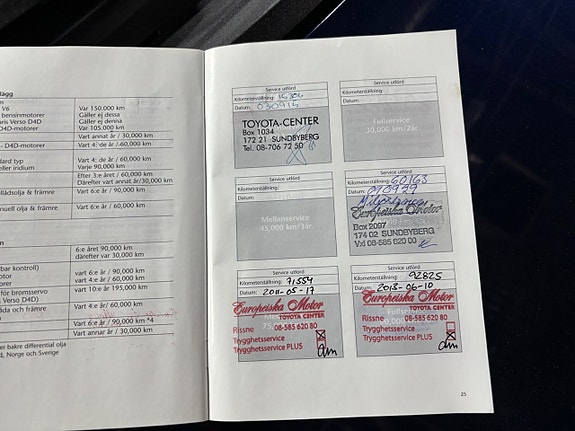 lägg
V6
bensinmotorer
aris Verso D4D
D4D-motorer
- D4D-motorer
dard typ
eller iridium
llådsolja & främre
nuell olja & främre
Var 150.000 km
Gäller ej dessa
Gäller ej dessa
Var 105.000 km
Vart annat år / 30,000 km
Vart 4:de år / 60,000 km
Vart 4: de år / 60,000 km
Varje 90,000 km
Efter 3:e året / 60,000 km
Därefter vart annat år/30,000 km
Vart 6:e år / 90,000 km
Vart 6:e år / 60,000 km
bar kontroll)
otor
motorer
för bromsservo
Verso D4D)
åda och främre
6:e året 90,000 km
därefter var 30,000 km
Vart 6:e år / 90,000 km
vart 4:e år / 60,000 km
Vart 10:e år 195,000 km
Vart 4:e år/ 60,000 km
Vart 6:e år / 90,000 km *4
Vart annar år / 30,000 km
er bakre differential olja
d, Norge och Sverige
Service utförd
Kilometerställning:
Datum: 030916
TOYOTA-CENTER
Box 1034
172 21 SUNDBYBERG
Tel. 08-706 72 50
Service utförd
Kilometerställning:
Datum:
Fullservice
30,000 km/2år
Service utförd
Kilometerställning:
Datum:
Mellanservice
45,000 km/3år
Service utförd
Kilometerställning: 60163
Datum: 090929
Europeiska Motor
Box 2097
174 02 SUNDBYBERG
Vxl 08-585 620 00
Service utförd
Kilometerställning: 71554
Datum: 2011-05-17
Europeiska Motor
TOYOTA CENTER
Rissne 08-585 620 80
Trygghetsservice
Trygghetsservice PLUS
Service utförd
Kilometerställning: 92825
Datum: 2013-06-10
Europeiska Motor
TOYOTA CENTER
Rissne 08-585 620 80
Trygghetsservice
Trygghetsservice PLUS
25